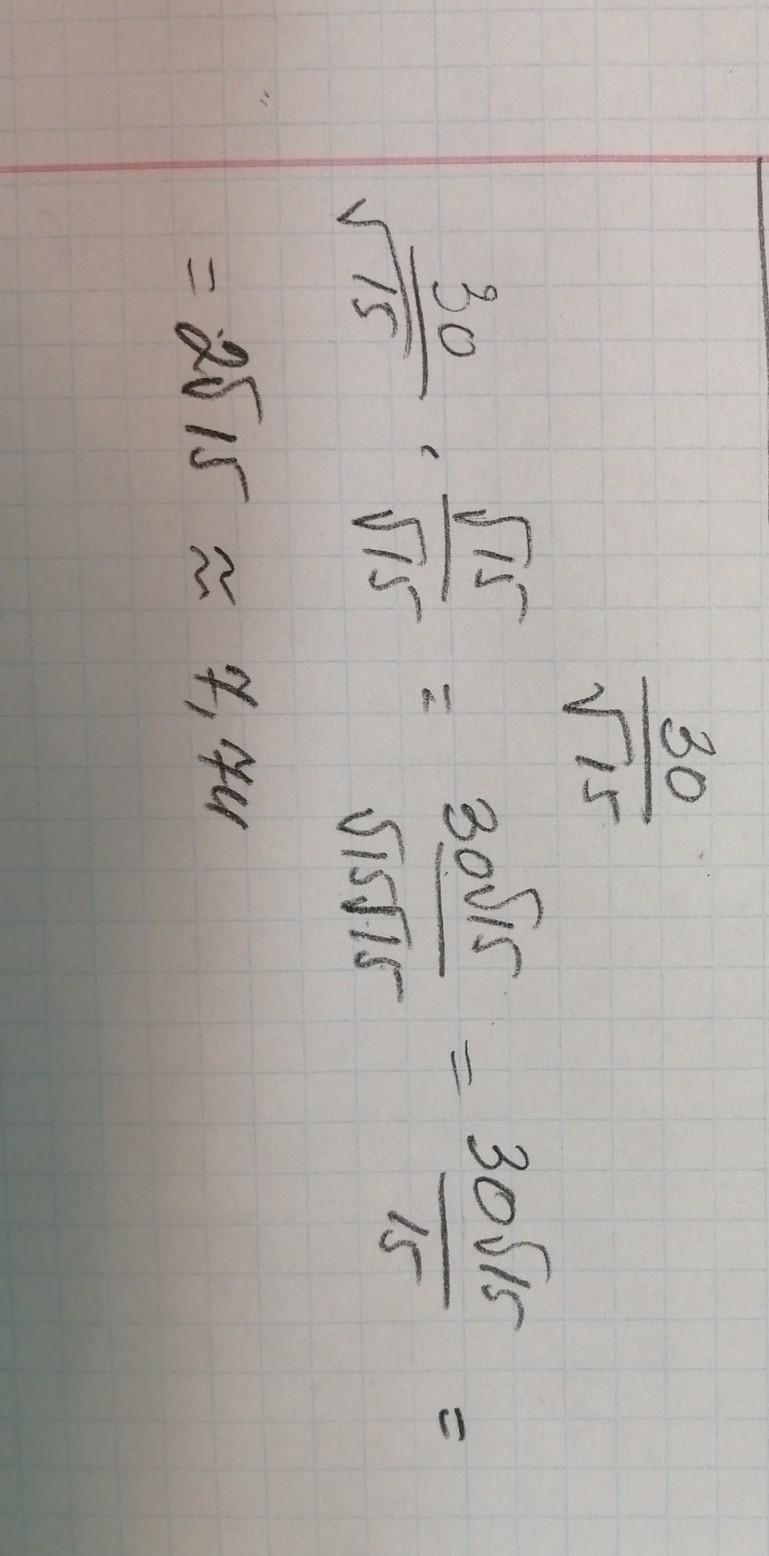 30/√15
30/√15 · √15/√15 = 30√15/√15√15 = 30√15/15 =
= 2√15 ≈ 7,74